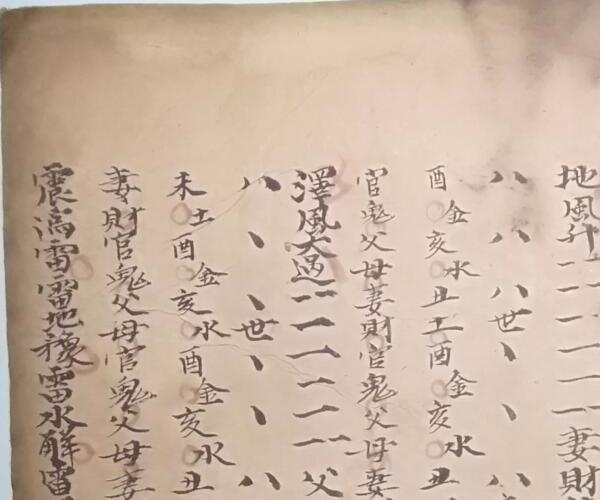 地風升妻財
八八八世、、八
酉金亥水丑土酉金亥水丑
官鬼父母妻財官鬼父母妻
澤風大過父
八、、世、、八
未土酉金亥水酉金亥水丑
妻財官鬼父母官鬼父母妻
震為雷雷地豫雷水解雷